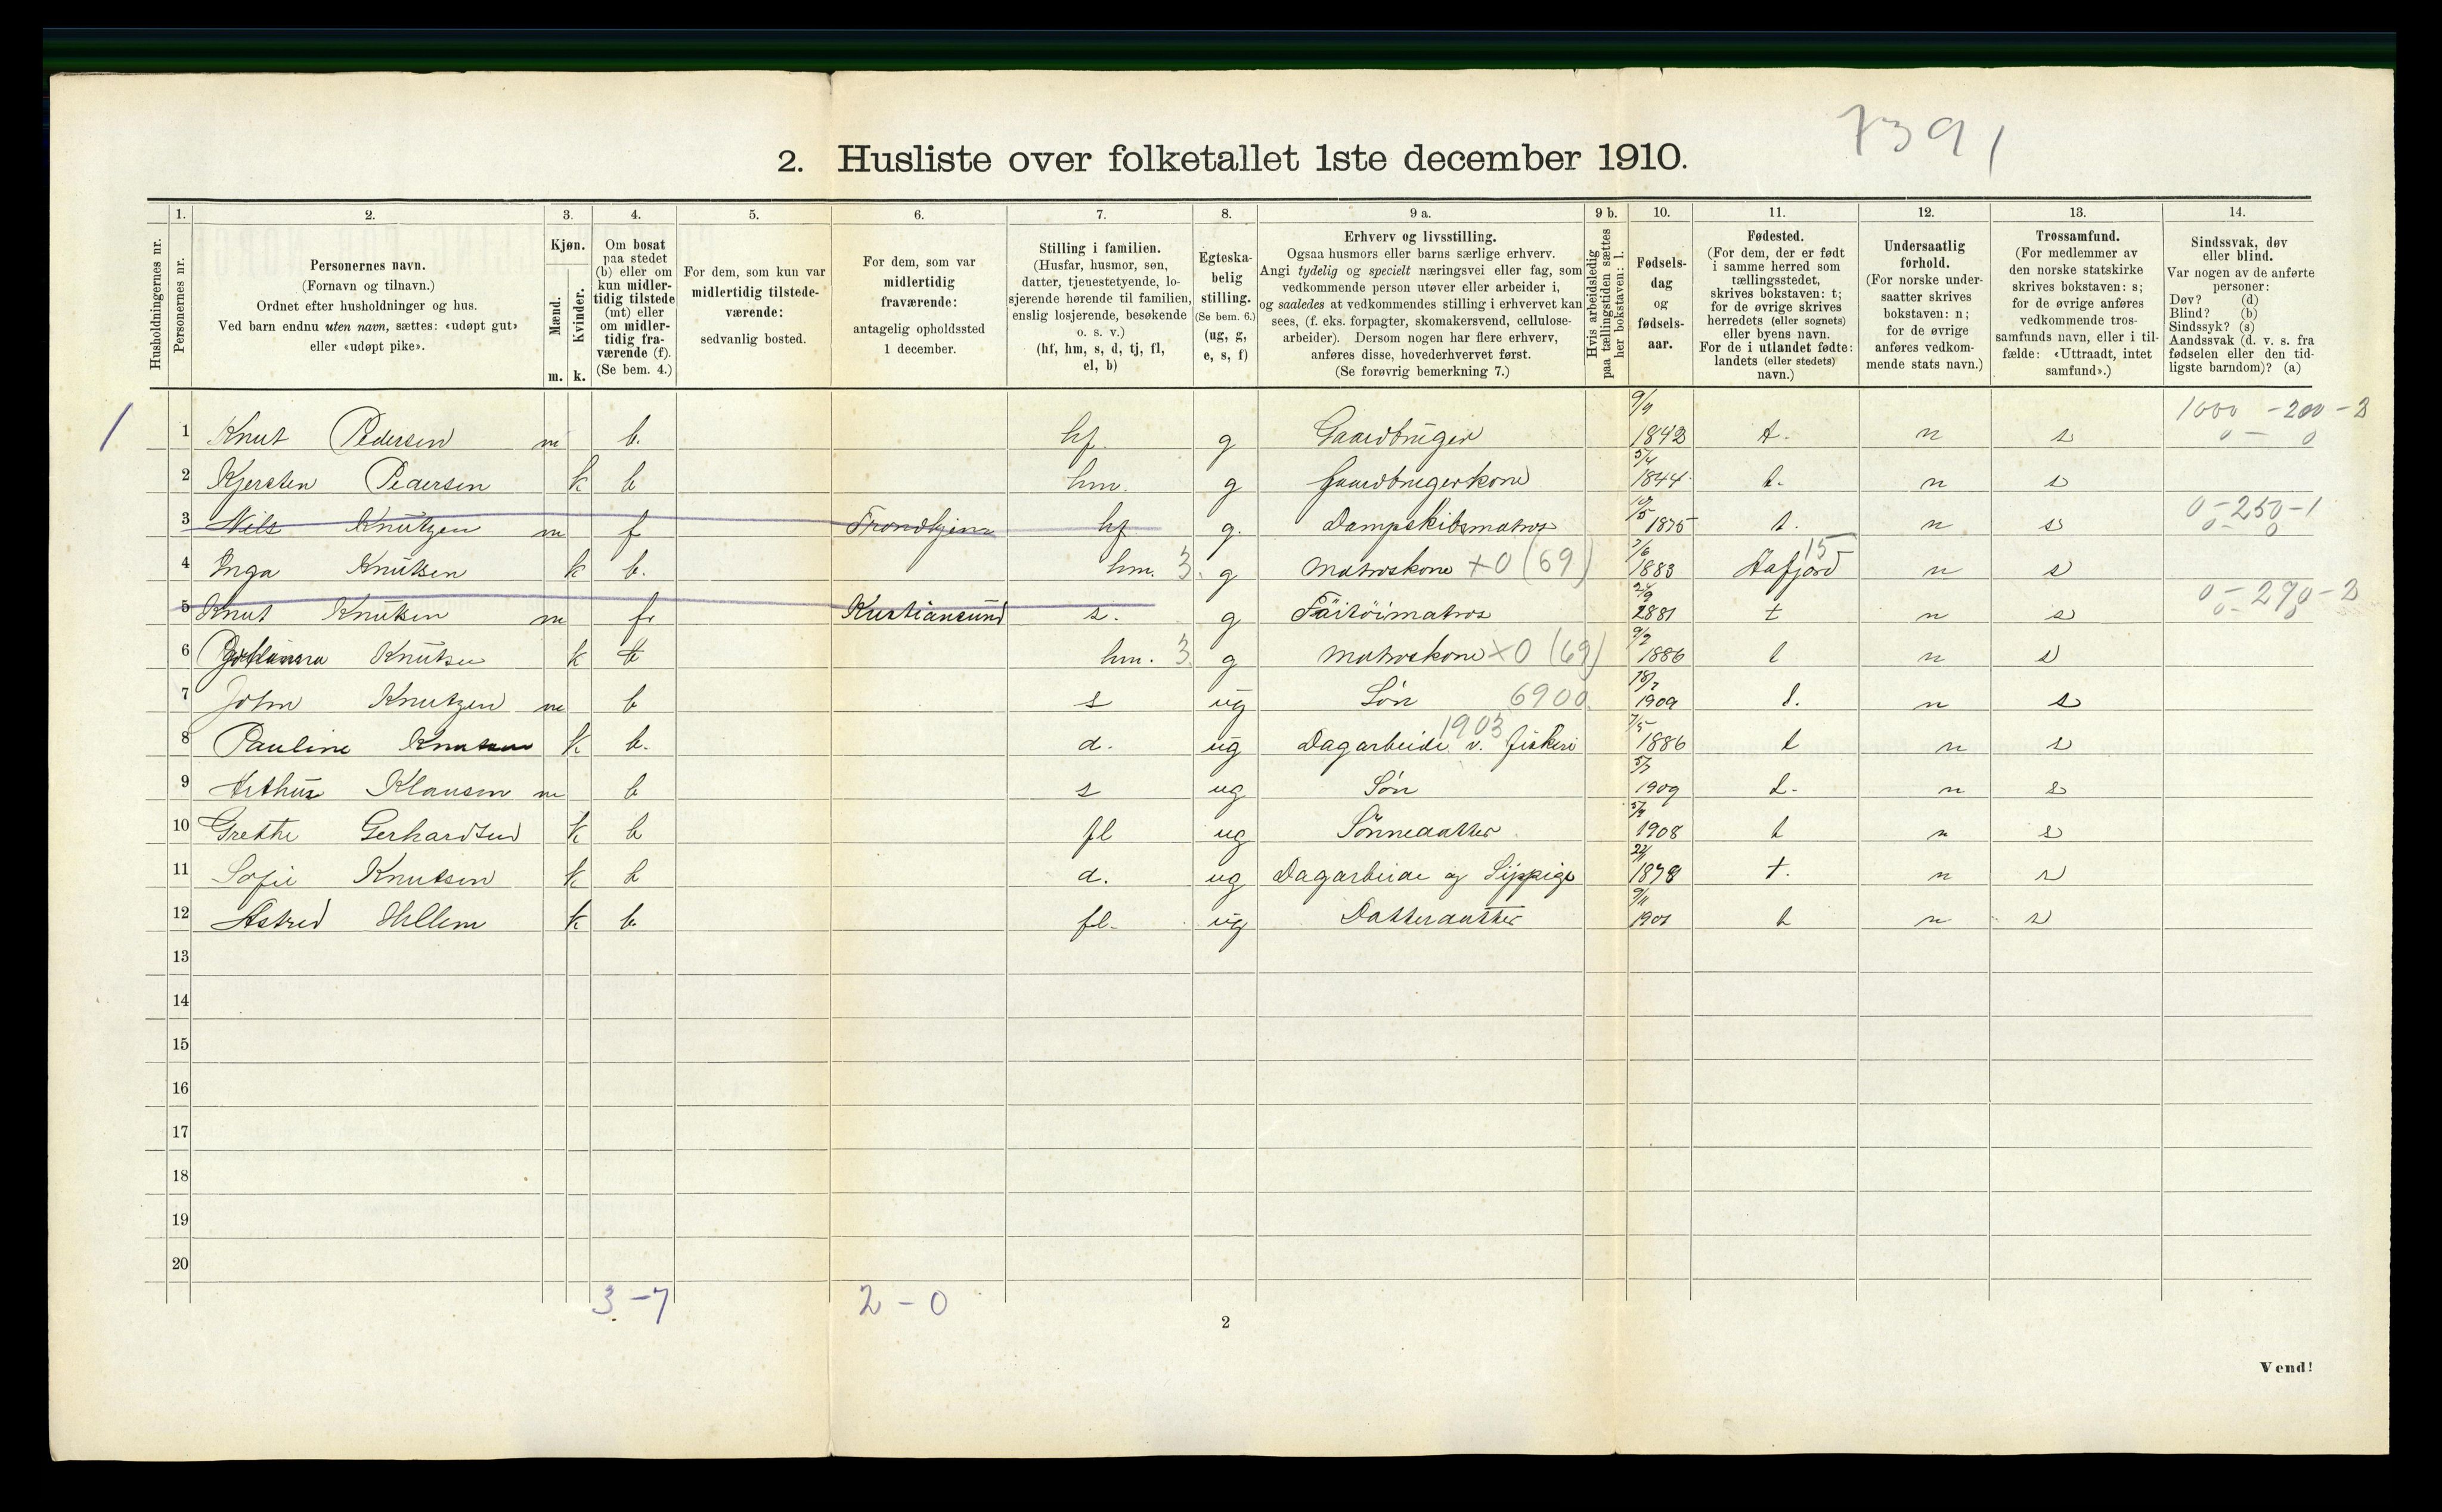 7391
2. Husliste over folketallet 1ste december 1910.
1. 2. 3. 4. 5. 6. 7. 8. 9 a. 9 b. 10. 11. 12. 13. 14.
Husholdningernes nr.
Personernes nr.
Personernes navn.
(Fornavn og tilnavn.)
Ordnet efter husholdninger og hus.
Ved barn endnu uten navn, sættes: «udøpt gut»
eller «udøpt pike».
Kjøn.
Mænd.
Kvinder.
m. k.
Om bosat
paa stedet
(b) eller om
kun midler-
tidig tilstede
(mt) eller
om midler-
tidig fra-
værende (f).
(Se bem. 4.)
For dem, som kun var
midlertidig tilstede-
værende:
sedvanlig bosted.
For dem, som var
midlertidig
fraværende:
antagelig opholdssted
1 december.
Stilling i familien.
(Husfar, husmor, søn,
datter, tjenestetyende, lo-
sjerende hørende til familien,
enslig losjerende, besøkende
o. s. v.)
(hf, hm, s, d, tj, fl,
el, b)
Egteska-
belig
stilling.
(Se bem. 6.)
(ug, g,
e, s, f)
Erhverv og livsstilling.
Ogsaa husmors eller barns særlige erhverv.
Angi tydelig og specielt næringsvei eller fag, som
vedkommende person utøver eller arbeider i,
og saaledes at vedkommendes stilling i erhvervet kan
sees, (f. eks. forpagter, skomakersvend, cellulose-
arbeider). Dersom nogen har flere erhverv,
anføres disse, hovederhvervet først.
(Se forøvrig bemerkning 7.)
Hvis arbeidsledig
paa tællingstiden sættes
her bokstaven: l.
Fødsels-
dag
og
fødsels-
aar.
Fødested.
(For dem, der er født
i samme herred som
tællingsstedet,
skrives bokstaven: t;
for de øvrige skrives
herredets (eller sognets)
eller byens navn.
For de i utlandet fødte:
landets (eller stedets)
navn.)
Undersaatlig
forhold.
(For norske under-
saatter skrives
bokstaven: n;
for de øvrige
anføres vedkom-
mende stats navn.)
Trossamfund.
(For medlemmer av
den norske statskirke
skrives bokstaven: s;
for de øvrige anføres
vedkommende tros-
samfunds navn, eller i til-
fælde: «Uttraadt, intet
samfund».)
Sindssvak, døv
eller blind.
Var nogen av de anførte
personer:
Døv? (d)
Blind? (b)
Sindssyk? (s)
Aandssvak (d. v. s. fra
fødselen eller den tid-
ligste barndom)? (a)
1 1 Knut Pedersen m b. hf g Gaardbruger 9/9 1842 t. n s 1000 - 200 - 2 0 - 0
2 Kjersten Pedersen k b hm. g Gaardbrugerkone 5/4 1844 t. n s
3 Nils Knutzen m f Trondhjem hf g. Dampskibsmatros 1875 t. n s 0 - 250 - 1 0 - 0
4 Inga Knutsen k b. hm. 3. g Matroskone x0 (69) 1883 Aafjord 15 n s
5 Knut Knutsen m f Kristiansund s. g Føitøimatros 24/9 2881 t n s 0 - 290 - 2 0 - 0
6 Knutsen k hm. 3 g Matroskone x0 (69) 9/2 1886 t n s
7 John Knutzen m b s ug Søn 6900 18/7 1909 t. n s
8 Pauline Knutsen k b. d. ug Dagarbeide v. fiskeri 1903 7/5 1886 t n s
9 Arthur Klausen m b s ug Søn 5/7 1909 t. n s
10 Grethe Gerhardsen k b fl ug Sønnedatter 1908 t n s
11 Sofie Knutsen k b d. ug Dagarbeide og 1878 t. n s
12 Astrid Hellem k b. fl. ug Datterdatter 9/11 1901 t n s
13
14
15
16
17
18
19
20
3 - 7 2 - 0
2
Vend!